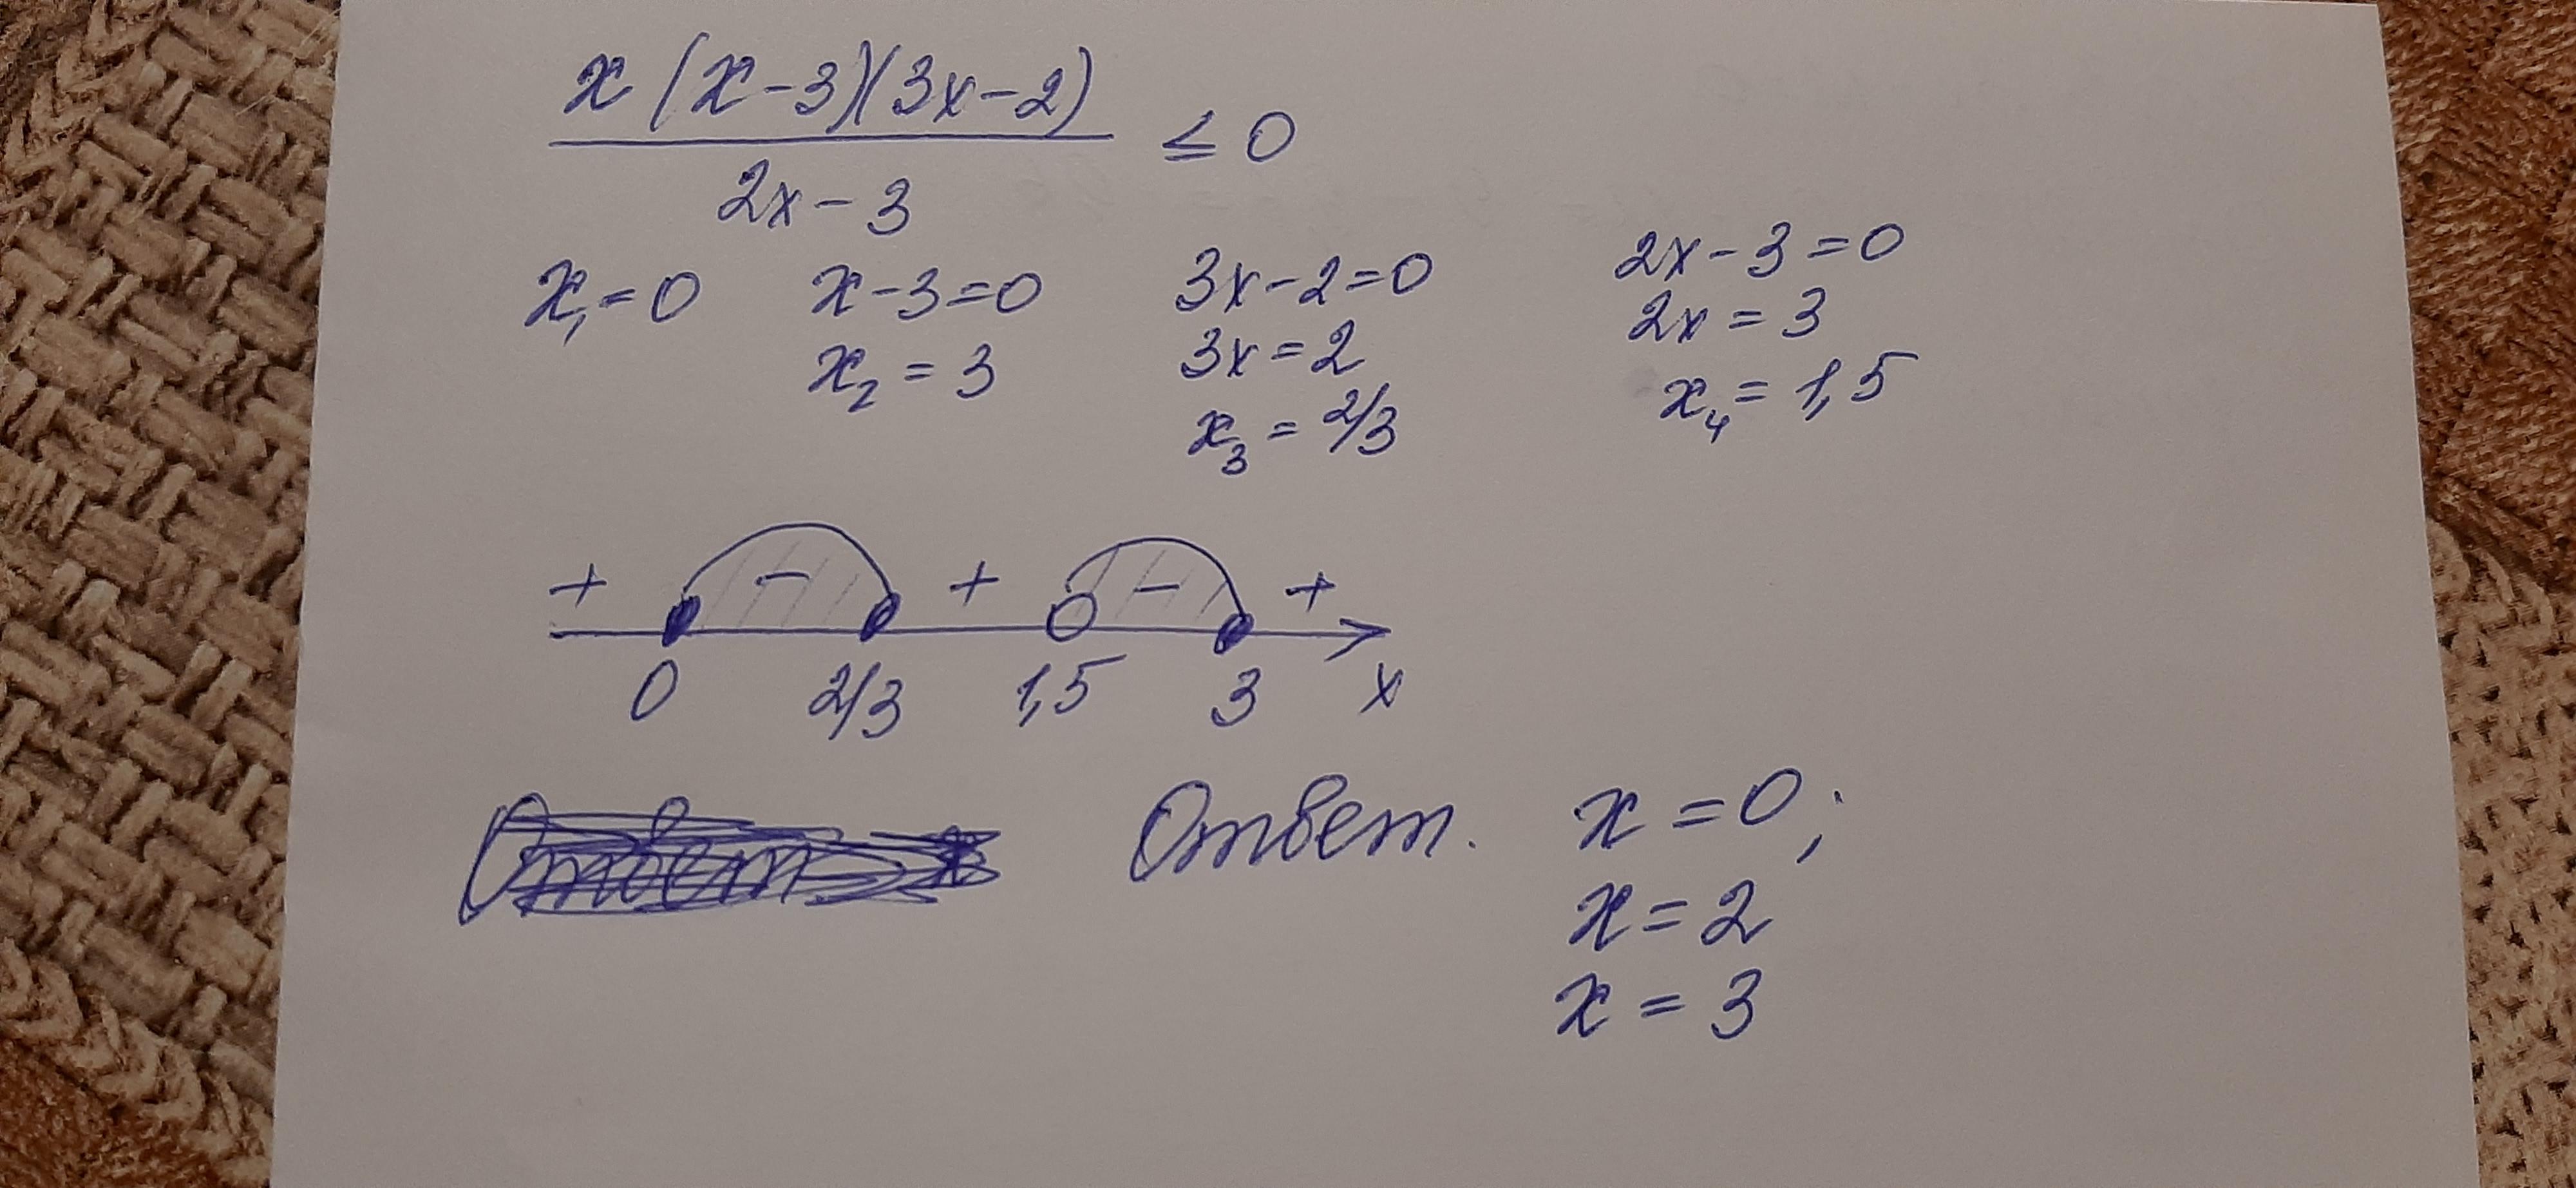 x(x-3)(3x-2)
2x-3
≤ 0
x₁=0
x-3=0
x₂=3
3x-2=0
3x=2
x₃=2/3
2x-3=0
2x=3
x₄=1,5
+ - + - +
0 2/3 1,5 3 x
Ответ. x=0;
x=2
x=3